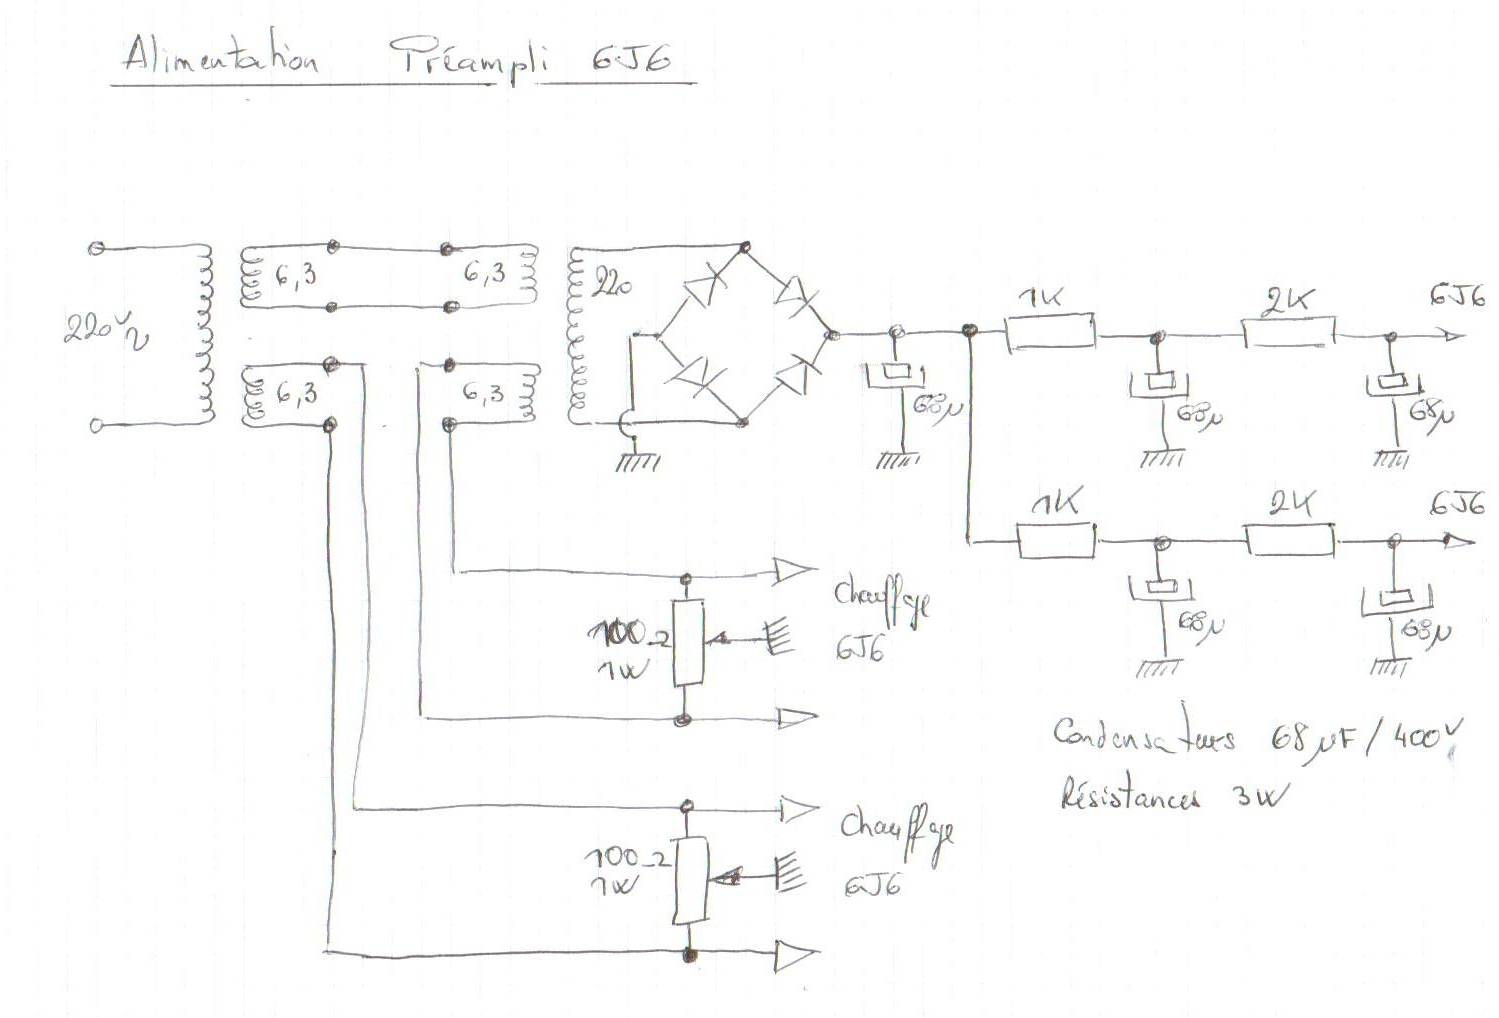 Alimentation Préampli 6J6
220V~
6,3
6,3
220
6,3
6,3
68µ
1K
68µ
2K
68µ
6J6
1K
68µ
2K
68µ
6J6
100Ω
1W
Chauffage
6J6
100Ω
1W
Chauffage
6J6
Condensateurs 68µF/400V
Résistances 3W